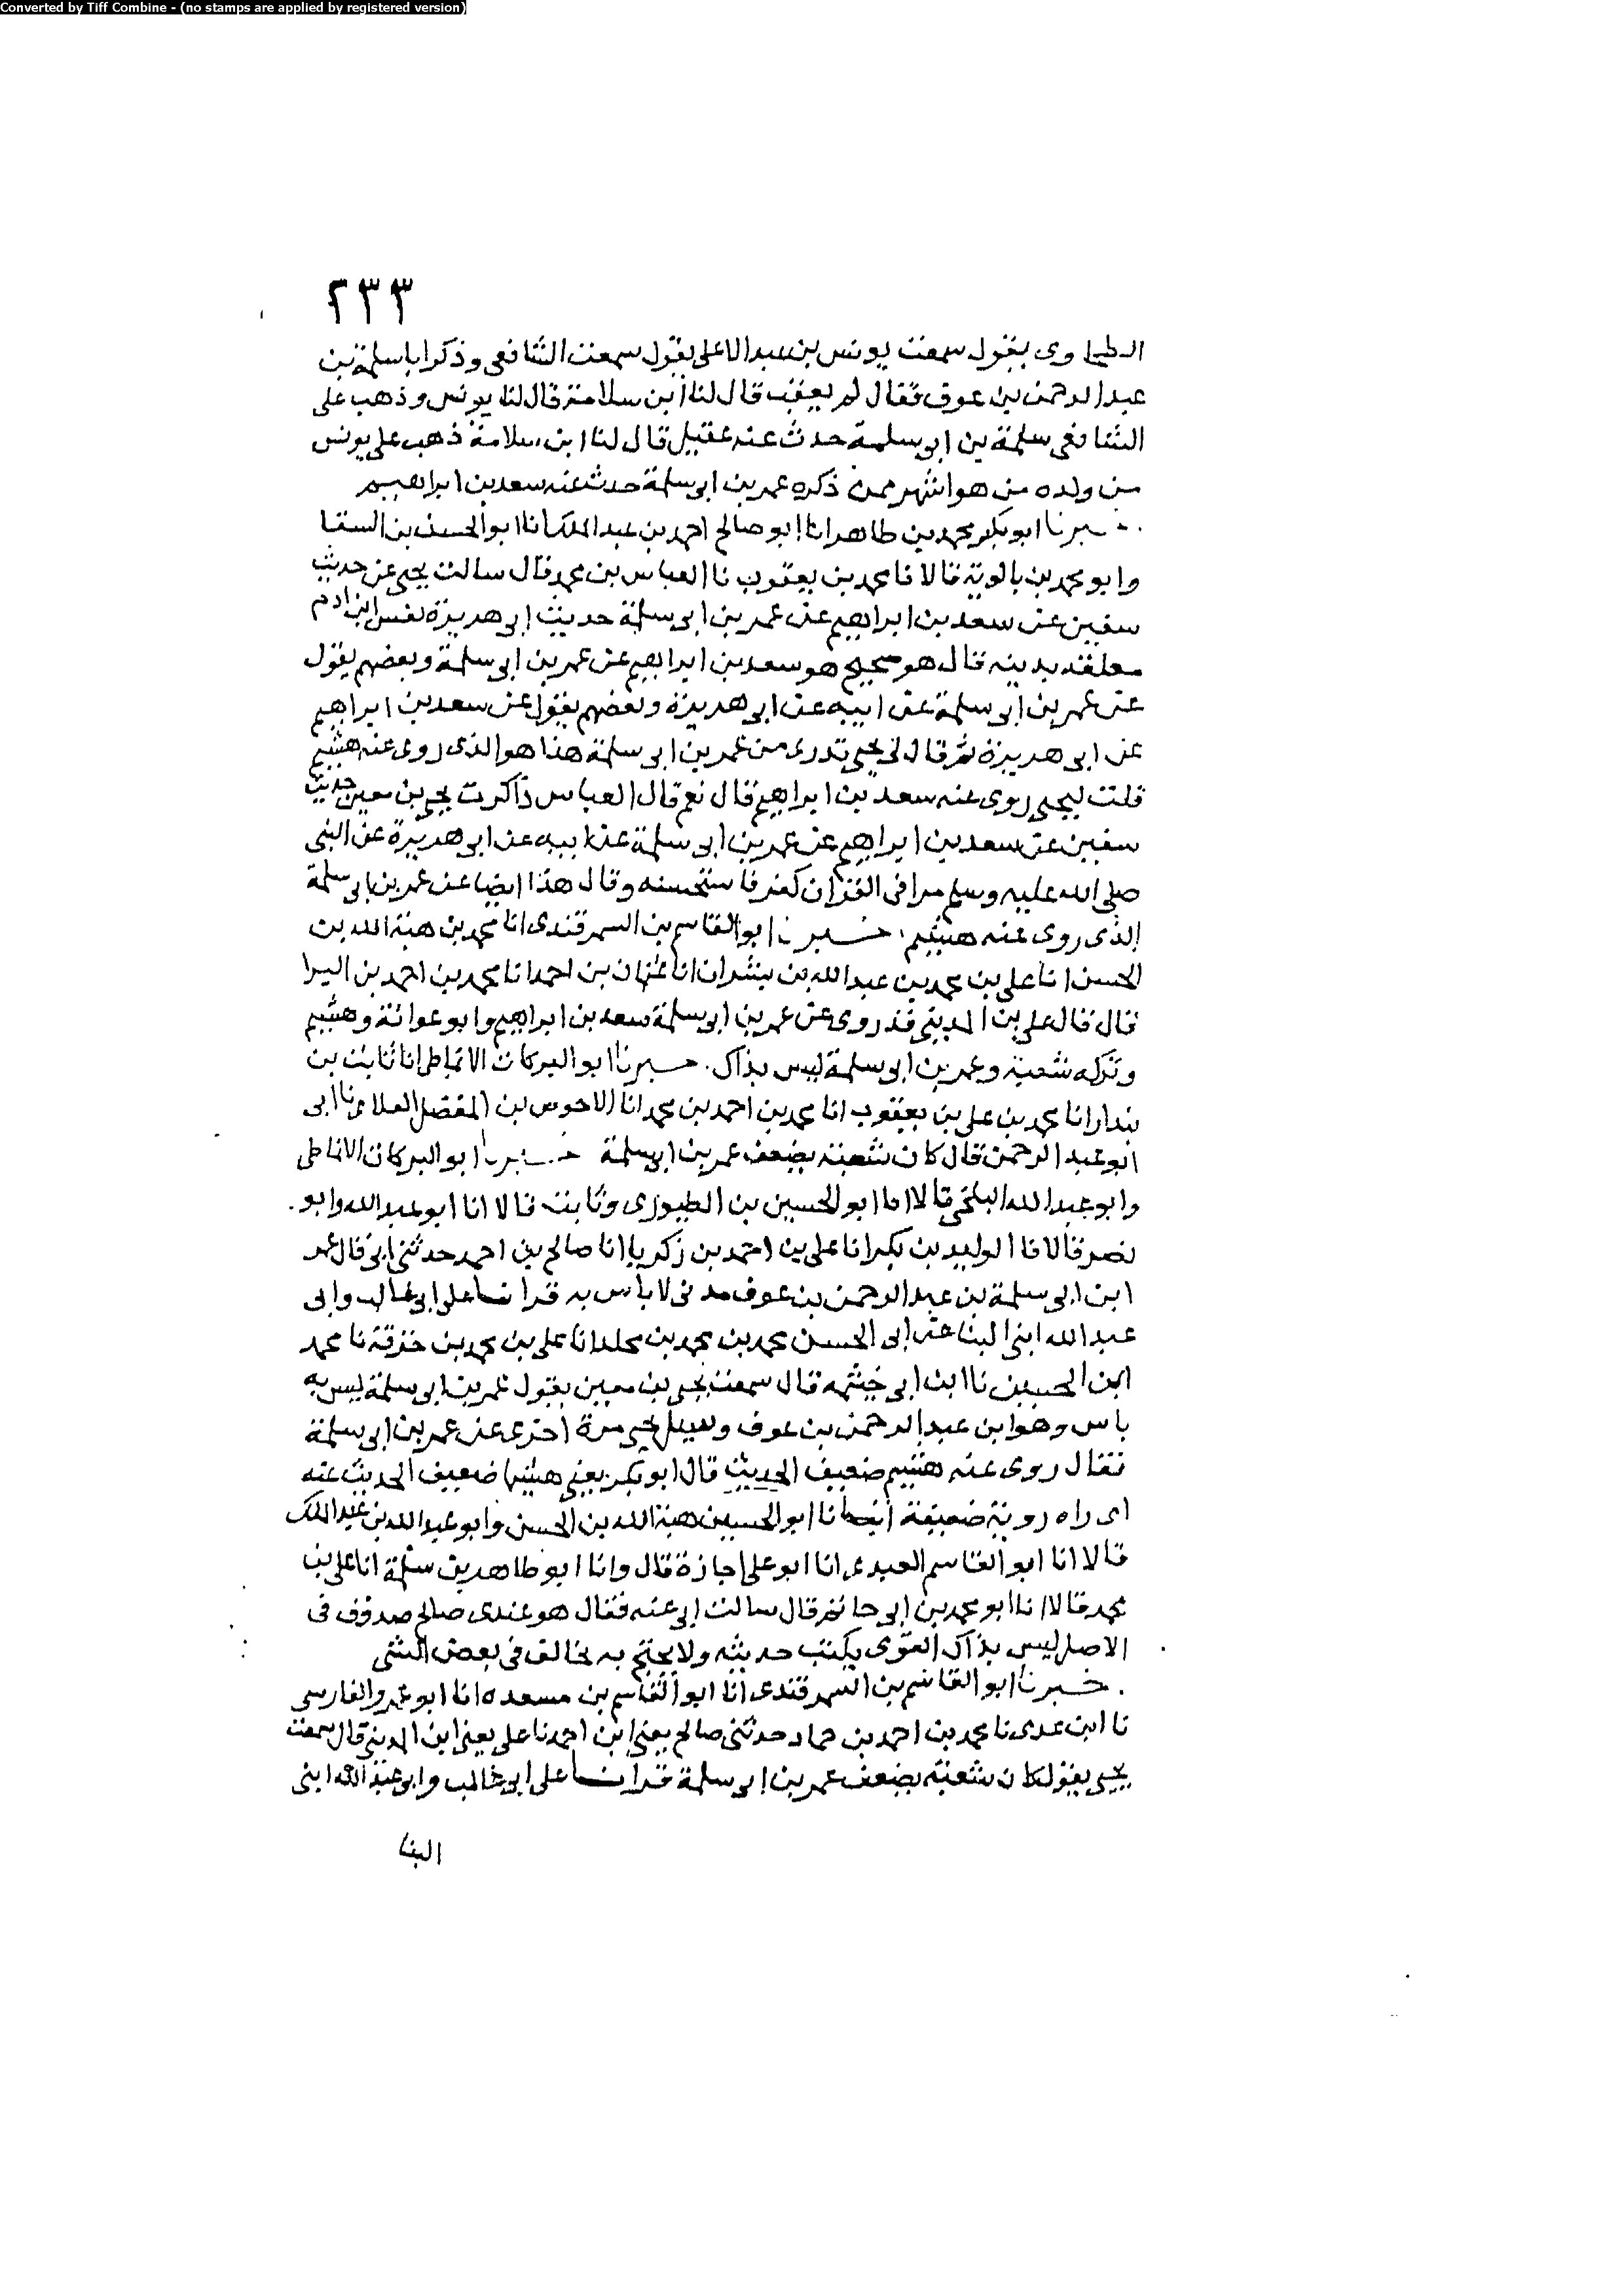 Converted by Tiff Combine - (no stamps are applied by registered version)
٢٣٣
الطحاوى يقول سمعت يونس بن عبد الاعلى يقول سمعت الشافعى وذكر ابا سلمة بن
عبد الرحمن بن عوف فقال لم يعقب قال لنا ابن سلامة قال لنا يونس وذهب على
الشافعى سلمة بن ابى سلمة حدث عنه عقيل قال لنا ابن سلامة ذهب على يونس
من ولده من هو اشهر ممن ذكره عمر بن ابى سلمة حدث عنه سعد بن ابراهيم
خبرنا ابو بكر محمد بن طاهر انا ابو صالح احمد بن عبد الملك انا ابو الحسن بن السقا
وابو محمد بن بالوية قالا نا محمد بن يعقوب نا العباس بن محمد قال سالت يحيى عن حديث
سفين عن سعد بن ابراهيم عن عمر بن ابى سلمة حديث ابى هريرة نفس ابن ادم
معلقه بدينه قال هو صحيح هو سعد بن ابراهيم عن عمر بن ابى سلمة وبعضهم يقول
عن عمر بن ابى سلمة عن ابيه عن ابى هريرة وبعضهم يقول عن سعد بن ابراهيم
عن ابى هريرة ثم قال لى يحيى تدرى من عمر بن ابى سلمة هذا هو الذى روى عنه هشيم
قلت ليحيى روى عنه سعد بن ابراهيم قال نعم قال العباس ذاكرت يحيى بن معين حديث
سفين عن سعد بن ابراهيم عن عمر بن ابى سلمة عن ابيه عن ابى هريرة عن النبى
صلى الله عليه وسلم مرا فى القران كفر فاستحسنه وقال هذا ايضا عن عمر بن ابى سلمة
الذى روى عنه هشيم خبرنا ابو القاسم بن السمرقندى انا محمد بن هبة الله بن
الحسن انا على بن محمد بن عبد الله بن بشران انا عثمان بن احمد انا محمد بن احمد بن البرا
قال قال على بن المدينى قد روى عن عمر بن ابى سلمة سعد بن ابراهيم وابو عوانة وهشيم
وتركه شعبة وعمر بن ابى سلمة ليس بذاك خبرنا ابو البركات الانماطى انا ثابت بن
بندار انا محمد بن على بن يعقوب انا محمد بن احمد بن محمد انا الاحوص بن المفضل الغلابى نا ابى
ابو عبد الرحمن قال كان شعبة يضعف عمر بن ابى سلمة خبرنا ابو البركات الانماطى
وابو عبد الله البلخى قالا انا ابو الحسين بن الطيورى وثابت قالا انا ابو عبد الله وابو
نصر قالا نا الوليد بن بكر انا على بن احمد بن زكريا انا صالح بن احمد حدثنى ابى قال عمر
ابن ابى سلمة بن عبد الرحمن بن عوف مدنى لا باس به قرانا على ابى غالب وابى
عبد الله ابنى البنا عن ابى الحسن محمد بن محمد بن مخلد انا على بن محمد بن خزفة نا محمد
ابن الحسين نا ابن ابى خيثمه قال سمعت يحيى بن معين يقول عمر بن ابى سلمة ليس به
باس وهو ابن عبد الرحمن بن عوف وسيل يحيى مرة اخرى عن عمر بن ابى سلمة
فقال روى عنه هشيم ضعيف الحديث قال ابو بكر يعنى هشيما ضعيف الحديث عنه
اى راه روية ضعيفة انبانا ابو الحسين هبة الله بن الحسن وابو عبد الله بن عبد الملك
قالا انا ابو القاسم العبدى انا ابو على اجازة قال وانا ابو طاهر بن سلمة انا على بن
محمد قالا انا ابو محمد بن ابى حاتم قال سالت ابى عنه فقال هو عندى صالح صدوق فى
الاصل ليس بذاك القوى يكتب حديثه ولا يحتج به يخالف فى بعض الشى
خبرنا ابو القاسم بن السمرقندى انا ابو القاسم بن مسعده انا ابو عمرو الفارسى
نا ابن عدى نا محمد بن احمد بن حماد حدثنى صالح يعنى ابن احمد نا على يعنى ابن المدينى قال سمعت
يحيى يقول كان شعبة يضعف عمر بن ابى سلمة قرانا على ابى غالب وابى عبد الله ابنى
البنا